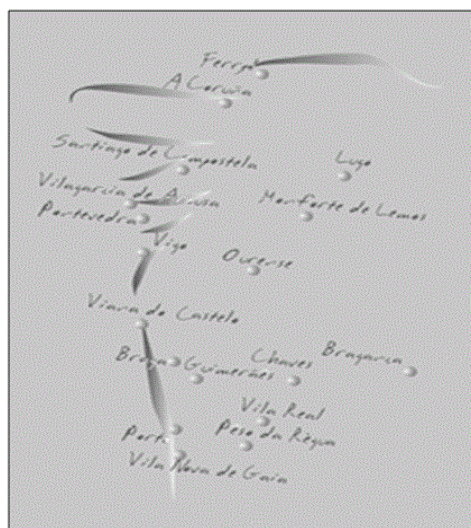 Ferrol
A Coruña
Santiago de Compostela
Lugo
Vilagarcía de Arousa
Monforte de Lemos
Pontevedra
Vigo
Ourense
Viana do Castelo
Braga
Guimarães
Chaves
Bragança
Vila Real
Porto
Peso da Régua
Vila Nova de Gaia